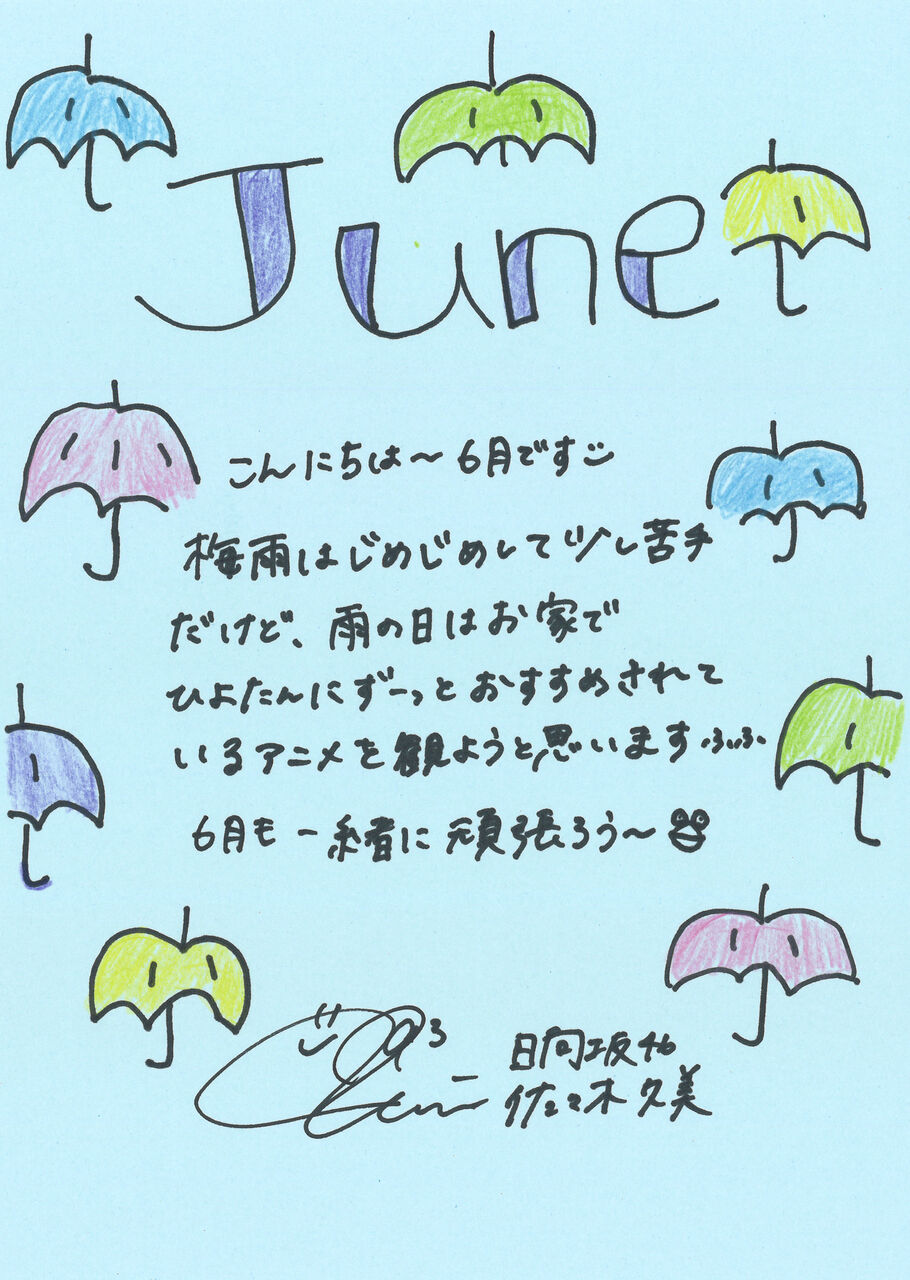 June
こんにちは〜6月です
梅雨はじめじめして少し苦手
だけど、雨の日はお家で
ひよたんにずーっとおすすめされて
いるアニメを観ようと思いますふふ
6月も一緒に頑張ろう〜
日向坂46
佐々木久美